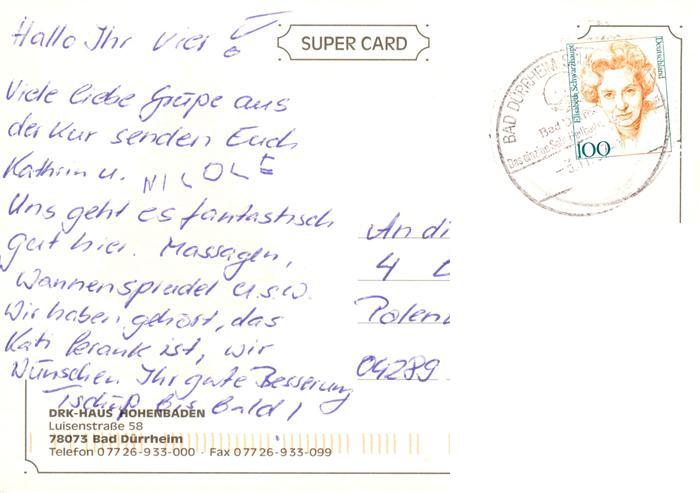 Hallo Ihr Vier!
SUPER CARD
Viele liebe Grüße aus
der Kur senden Euch
Kathrin u. NICOLE
Uns geht es fantastisch
gut hier. Massagen,
Wannensprudel u.s.w.
Wir haben gehört, das
Kati krank ist, wir
Wünschen Ihr gute Besserung
Tschüß bis bald!
An di
4
04289
DRK-HAUS HOHENBADEN
Luisenstraße 58
78073 Bad Dürrheim
Telefon 0 77 26-9 33-000 · Fax 0 77 26-9 33-099
BAD DÜRRHEIM
Deutschland
Elisabeth Schwarzhaupt
100